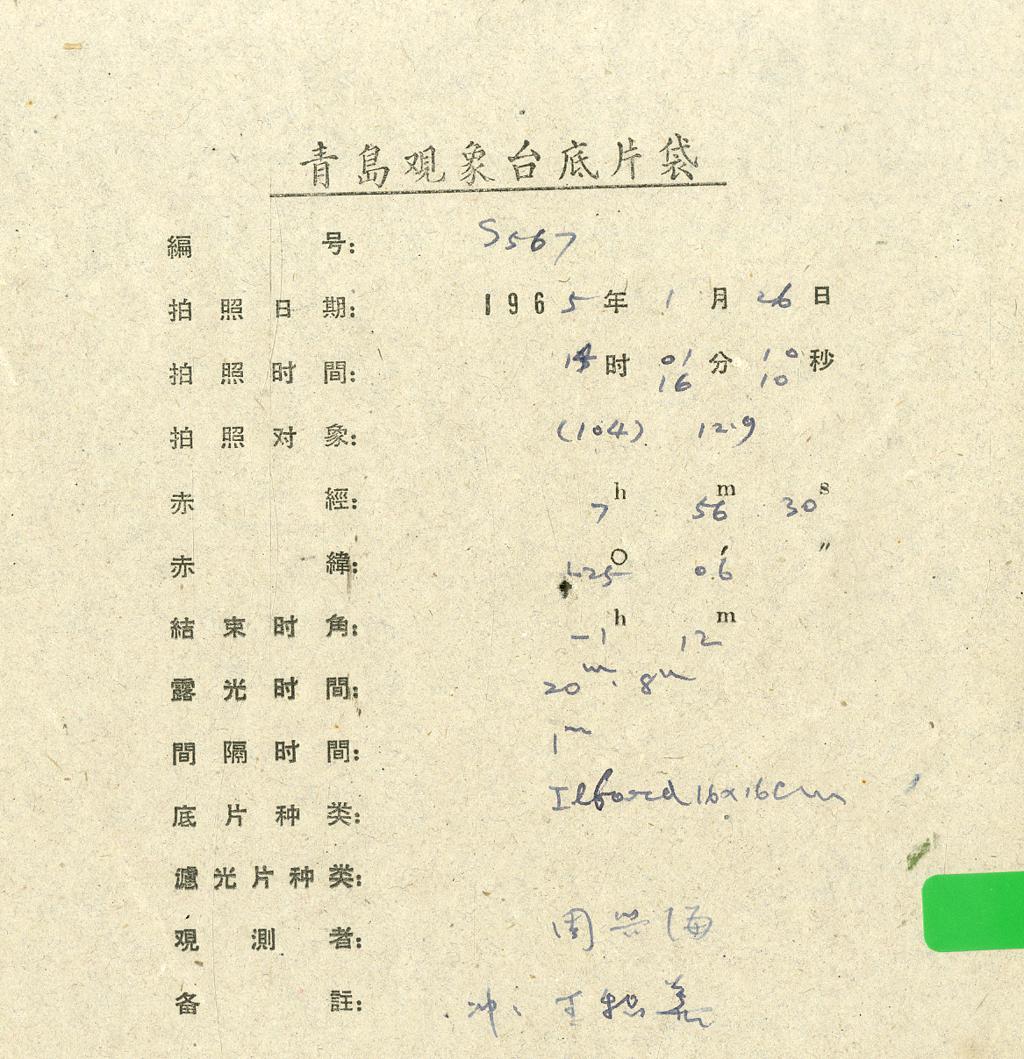 青島观象台底片袋
編号: S567
拍照日期: 1965年1月26日
拍照时間: 14时01分10秒
16 10
拍照对象: (104) 12.9
赤經: 7h 56m 30s
赤緯: +25° 06′ ″
結束时角: -1h 12m
露光时間: 20m. 8m
間隔时間: 1m
底片种类: Ilford 16x16cm
濾光片种类:
观測者: 周兴海
备註: 冲、王